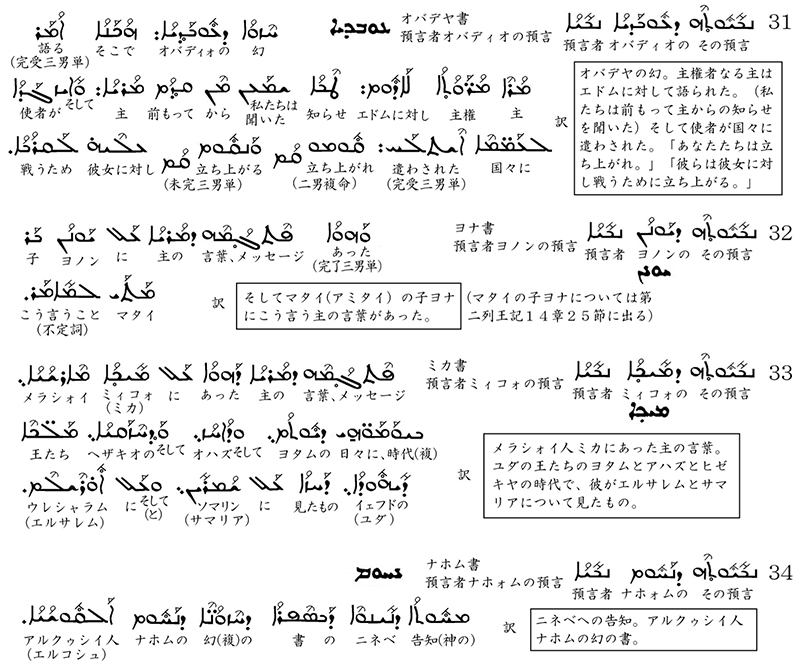 31 ܢܒܝܘܬܗ ܕܥܘܒܕܝܐ ܢܒܝܐ
預言者オバディオの その預言
オバデヤ書 ܥܘܒܕܝܐ
預言者オバディオの預言
ܚܙܘܐ ܕܥܘܒܕܝܐ܆ ܗܟܢܐ ܐܡܪ
語る そこで オバディオの 幻
(完受三男単)
ܡܪܐ ܡܪܘܬܐ ܠܐܕܘܡ܆ ܛܒܐ ܫܡܥܢ ܡܢ ܩܕܡ ܡܪܝܐ܆ ܘܐܝܙܓܕܐ
使者が そして 主 前もって から 私たちは聞いた 知らせ エドムに対し 主権 主
ܠܥܡܡܐ ܐܫܬܠܚ܆ ܩܘܡܘ ܩܡ ܘܢܩܘܡ ܩܡ ܥܠܝܗ ܠܩܪܒܐ.
戦うため 彼女に対し 立ち上がる 立ち上がれ 遣わされた 国々に
(未完三男単) (二男複命) (完受三男単)
訳
オバデヤの幻。主権者なる主は
エドムに対して語られた。（私
たちは前もって主からの知らせ
を聞いた）そして使者が国々に
遣わされた。「あなたたちは立
ち上がれ。」「彼らは彼女に対
し戦うために立ち上がる。」
32 ܢܒܝܘܬܗ ܕܝܘܢܢ ܢܒܝܐ
預言者 ヨノンの その預言
ܝܘܢܢ
ヨナ書
預言者ヨノンの預言
ܘܗܘܐ ܦܬܓܡܗ ܕܡܪܝܐ ܥܠ ܝܘܢܢ ܒܪ
子 ヨノン に 主の 言葉、メッセージ あった
(完了三男単)
ܡܬܝ ܠܡܐܡܪ.
こう言うこと マタイ
(不定詞)
訳
そしてマタイ(アミタイ）の子ヨナ
にこう言う主の言葉があった。
(マタイの子ヨナについては第
二列王記１４章２５節に出る)
33 ܢܒܝܘܬܗ ܕܡܝܟܐ ܢܒܝܐ
預言者 ミィコォの その預言
ܡܝܟܐ
ミカ書
預言者ミィコォの預言
ܦܬܓܡܗ ܕܡܪܝܐ ܕܗܘܐ ܥܠ ܡܝܟܐ ܡܘܪܫܝܐ.
メラシォイ ミィコォ に あった 主の 言葉、メッセージ
(ミカ)
ܕܝܘܬܡ. ܘܕܐܚܙ. ܘܕܚܙܩܝܐ. ܡܠܟܐ
王たち ヘザキオの そして オハズ そして ヨタムの 日々に、時代(複)
ܕܝܗܘܕܐ. ܕܚܙܐ ܥܠ ܫܡܪܝܢ. ܘܥܠ ܐܘܪܫܠܡ.
ウレシャラム に そして ソマリン に 見たもの イェフドの
(エルサレム) (と) (サマリア) (ユダ)
訳
メラシォイ人ミカにあった主の言葉。
ユダの王たちのヨタムとアハズとヒゼ
キヤの時代で、彼がエルサレムとサマ
リアについて見たもの。
34 ܢܒܝܘܬܗ ܕܢܚܘܡ ܢܒܝܐ
預言者 ナホォムの その預言
ナホム書 ܢܚܘܡ
預言者ナホォムの預言
ܕܢܝܢܘܐ ܕܣܦܪܐ ܕܢܚܘܡ ܐܠܩܘܫܝܐ.
アルクゥシイ人 ナホムの 幻(複)の 書 の ニネベ 告知(神の)
(エルコシュ)
訳
ニネベへの告知。アルクゥシイ人
ナホムの幻の書。